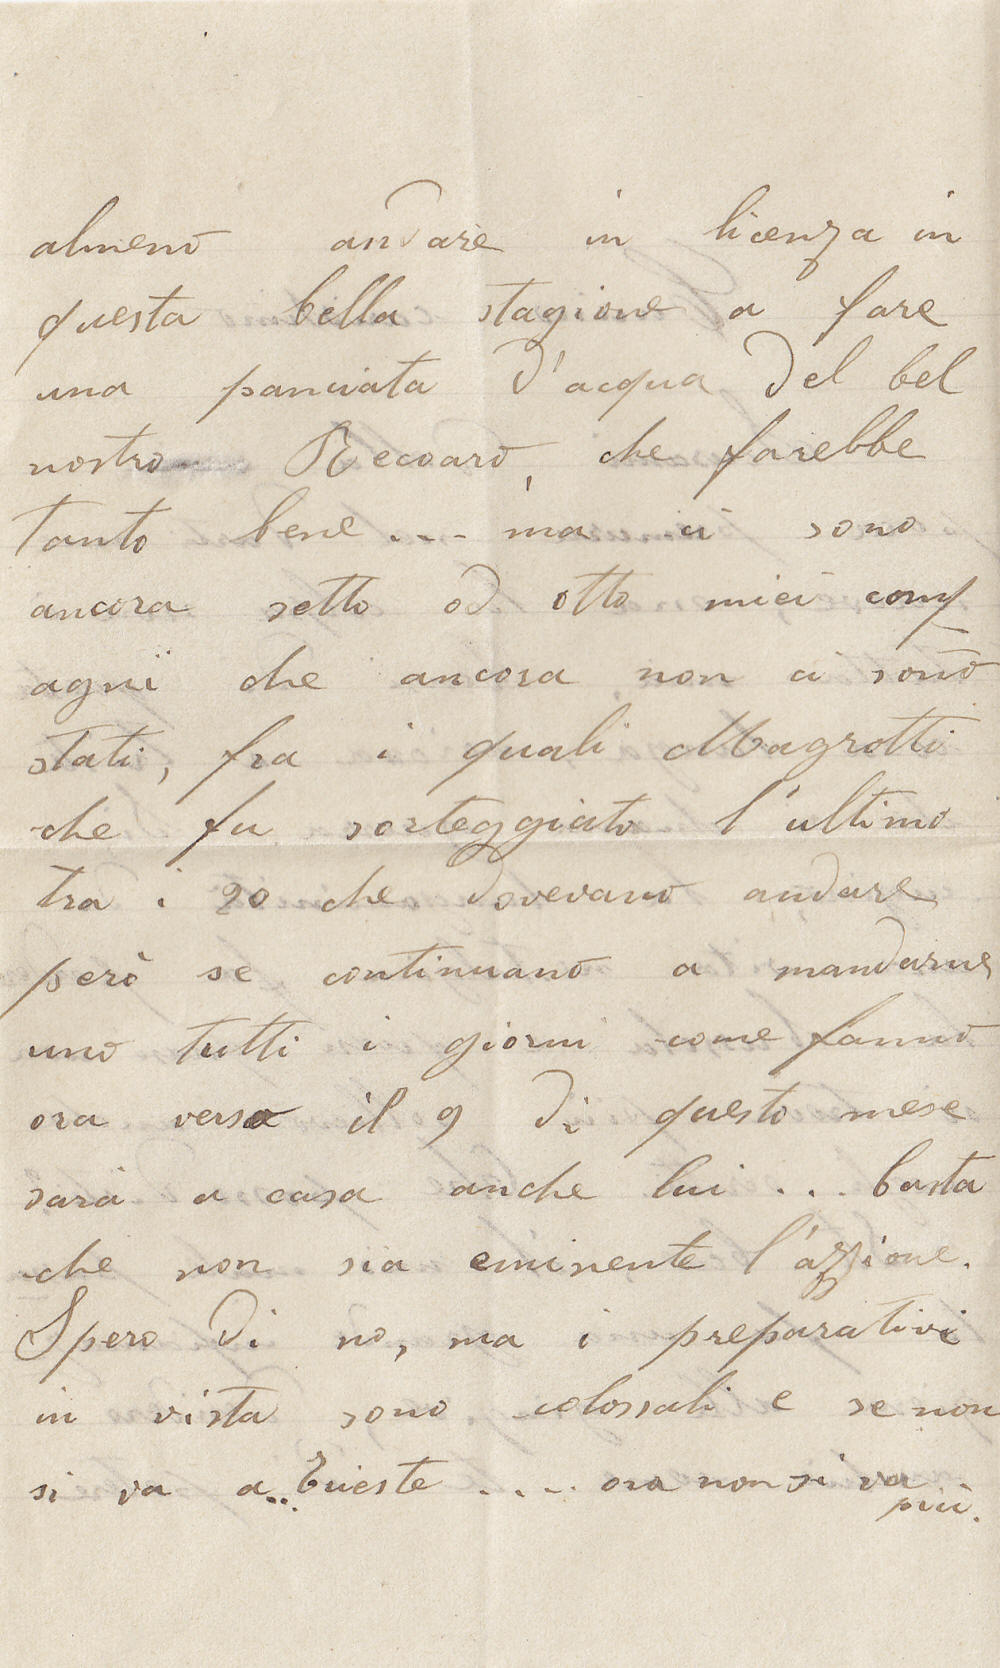 almeno andare in licenza in
questa bella stagione a fare
una panciata d'acqua del bel
nostro Recoaro, che farebbe
tanto bene ... ma ci sono
ancora sette od otto miei comp
agni che ancora non ci sono
stati, fra i quali Magrotti
che fu sorteggiato l'ultimo
tra i 20 che dovevano andare
però se continuano a mandarne
uno tutti i giorni come fanno
ora verso il 9 di questo mese
sarà a casa anche lui ... basta
che non sia eminente l'azzione.
Spero di no, ma i preparativi
in vista sono colossali e se non
si va a... Trieste .... ora non si va
più.